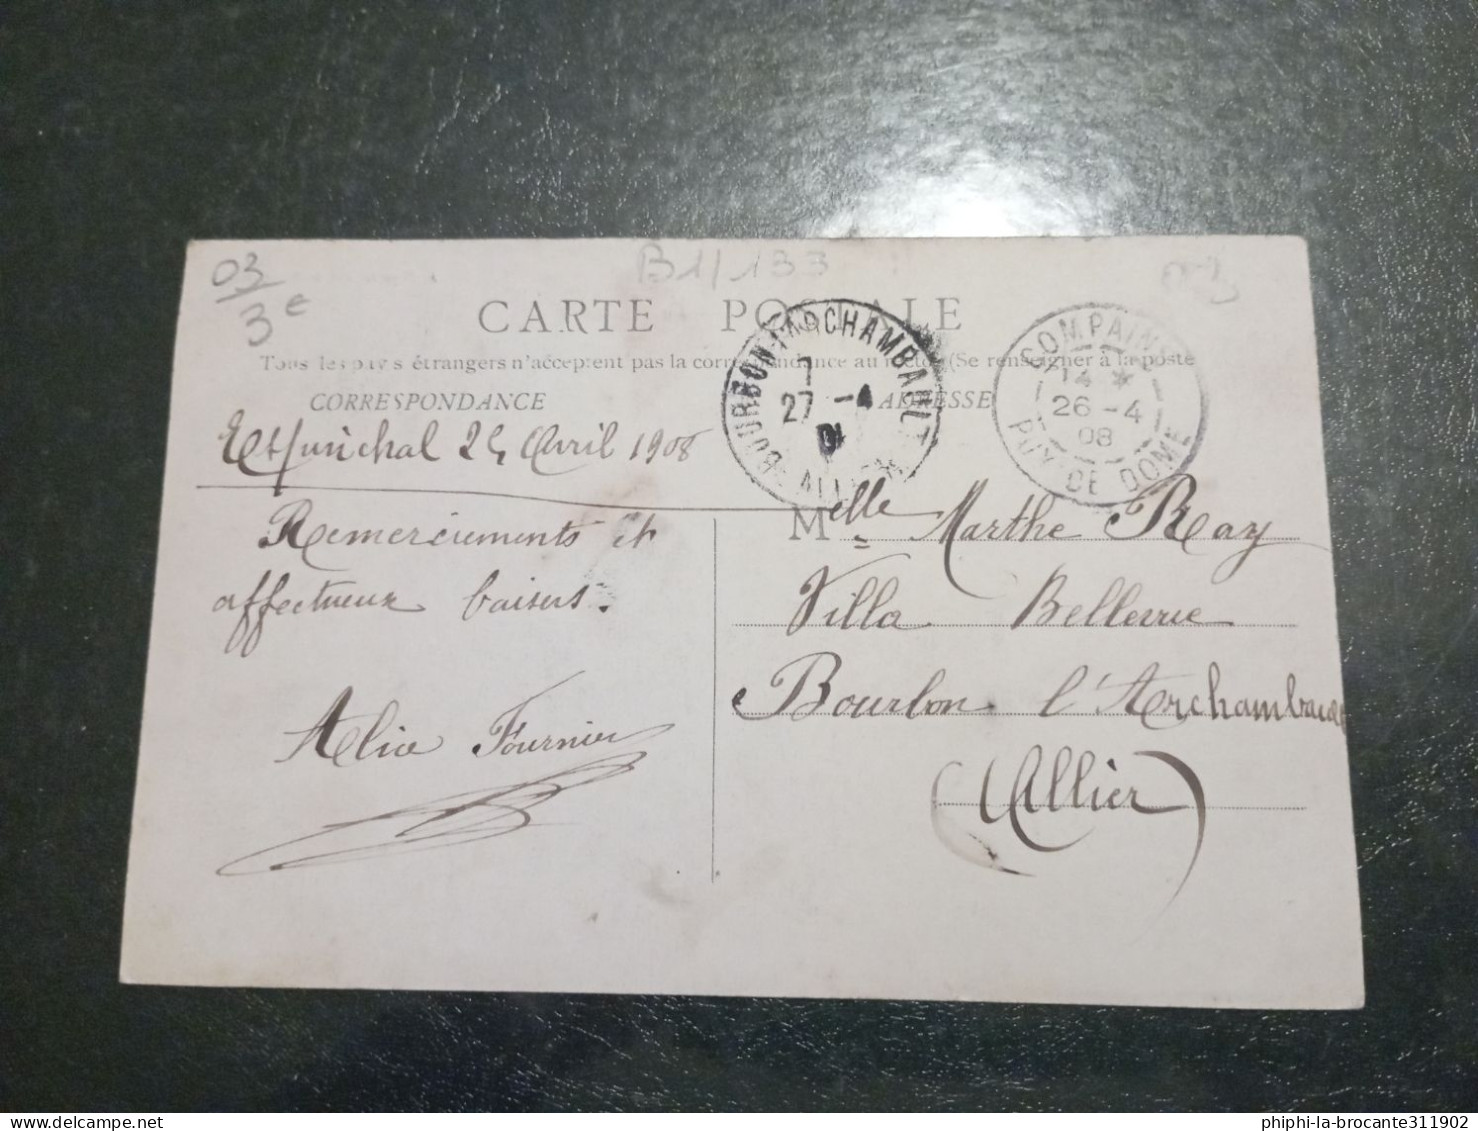 03
3e
B1/133
CARTE POSTALE
Tous les pays étrangers n'acceptent pas la correspondance au recto (Se renseigner à la poste
CORRESPONDANCE
ADRESSE
BOURBON L'ARCHAMBAULT
7
27 -4
ALLIER
COMPAINS
14 *
26 -4
08
PUY-DE-DOME
24 Avril 1908
Remerciements et
affectueux baisers.
Alice Fournier
Melle Marthe Ray
Villa Bellevue
Bourbon l'Archambault
(Allier)
phiphi-la-brocante311902